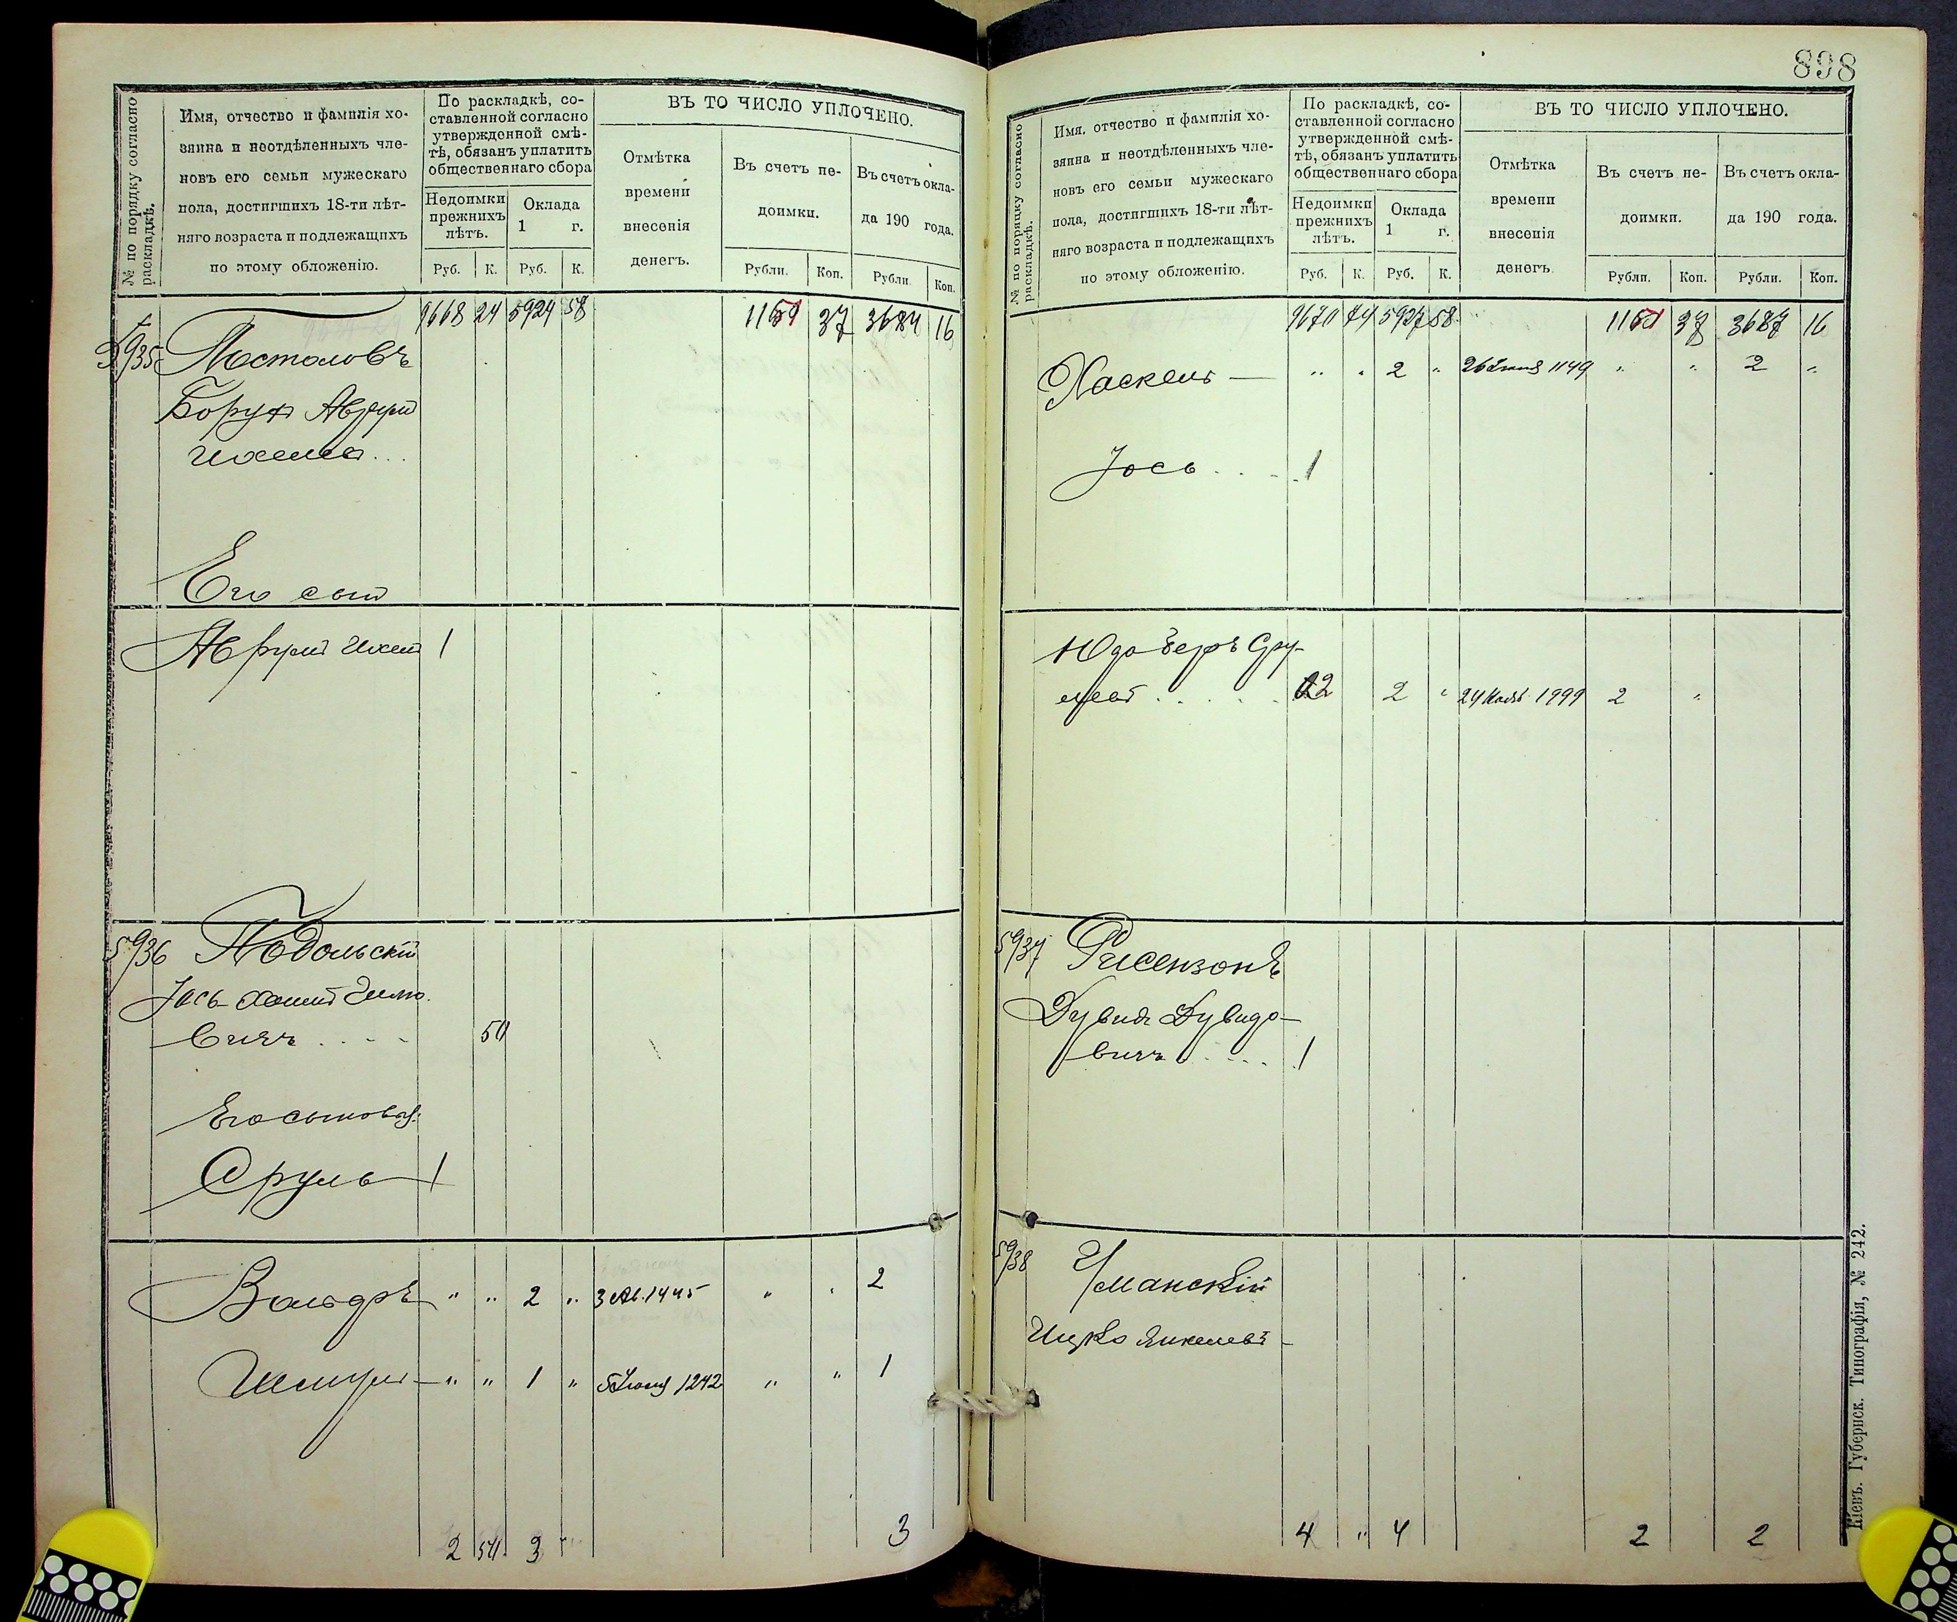 898
№ по порядку согласно раскладкѣ.
Имя, отчество и фамилія хо-
зяина и неотдѣленныхъ чле-
новъ его семьи мужескаго
пола, достигшихъ 18-ти лѣт-
няго возраста и подлежащихъ
по этому обложенію.
По раскладкѣ, со-
ставленной согласно
утвержденной смѣ-
тѣ, обязанъ уплатить
общественнаго сбора
Недоимки
прежнихъ
лѣтъ.
Оклада
1 г.
Руб. К. Руб. К.
ВЪ ТО ЧИСЛО УПЛОЧЕНО.
Отмѣтка
времени
внесенія
денегъ.
Въ счетъ не-
доимки.
Въ счетъ окла-
да 190 года.
Рубли. Коп. Рубли. Коп.
9668 24 5924 58 37 3684 16
5935 Мостоловъ
Борух Аврум
Ихелев...
Его сын
Аврум Ихел 1
5936 Подольскій
Іось Хаим
вичъ .... 50
Его сыновья:
Сруль 1
Вольфъ " " 2 " 3 Ав. 1445 " " 2
Шмуль " " 1 " 5 Іюня 1242 " " 1
2 50 3 " 3
№ по порядку согласно раскладкѣ.
Имя, отчество и фамилія хо-
зяина и неотдѣленныхъ чле-
новъ его семьи мужескаго
пола, достигшихъ 18-ти лѣт-
няго возраста и подлежащихъ
по этому обложенію.
По раскладкѣ, со-
ставленной согласно
утвержденной смѣ-
тѣ, обязанъ уплатить
общественнаго сбора
Недоимки
прежнихъ
лѣтъ.
Оклада
1 г.
Руб. К. Руб. К.
ВЪ ТО ЧИСЛО УПЛОЧЕНО.
Отмѣтка
времени
внесенія
денегъ.
Въ счетъ не-
доимки.
Въ счетъ окла-
да 190 года.
Рубли. Коп. Рубли. Коп.
9670 74 5927 58 37 3687 16
Хаскель — " " 2 " 1149 " " 2 "
Іось . . . 1
Юдо Беръ Сру-
левъ . . . . 2 2 " 24 1999 2 "
5937 Рисензонъ
Дувидъ Дувидо-
вичъ . . . . 1
5938 Уманскій
Ицко Янкелевъ
4 " 4 2 2
Кіевъ. Губернск. Типографія, № 242.